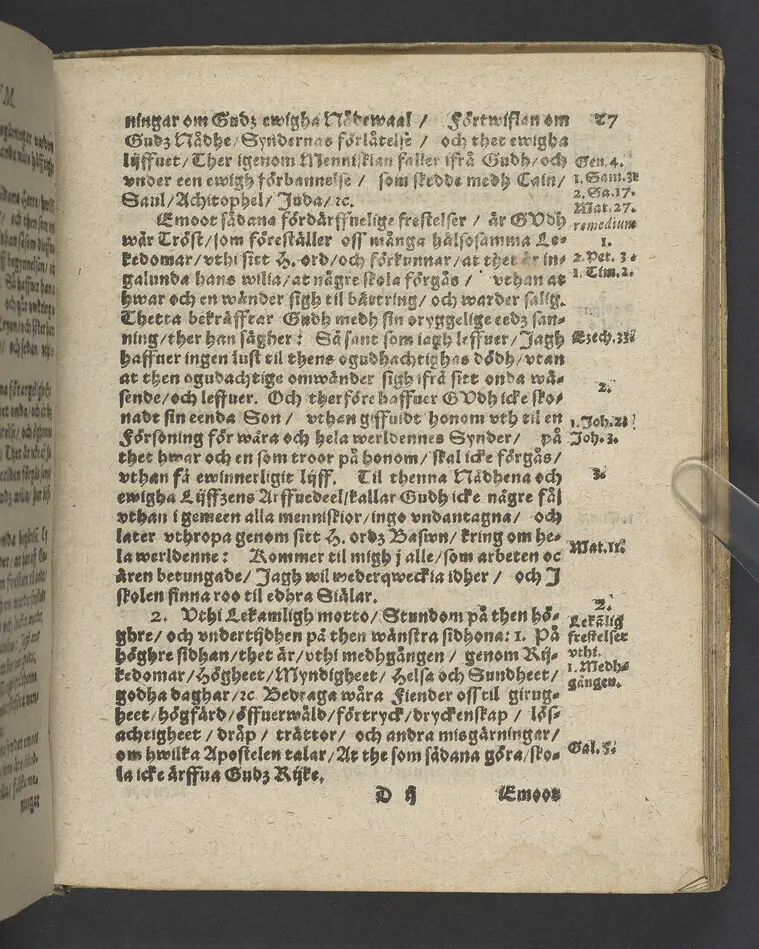 ningar om Gudz ewigha Nådewaal / Förtwiflan om
27
Gudz Nådhe / Syndernas förlåtelse / och thet ewigha
lijffuet / Ther igenom Menniskian faller ifrå Gudh / och
Gen. 4.
vnder een ewigh förbannelse / som skedde medh Cain /
1. Sam. 31
Saul / Achitophel / Juda / ꝛc.
2. Sa. 17.
Mat. 27.
Emoot sådana fördärffnelige frestelser / är GVdh
remedium
wår Tröst / som föreställer oss många hälsosamma Le-
1.
kedomar / vthi sitt H. ord / och förkunnar / at thet är in-
2. Pet. 3.
galunda hans wilia / at någre skola förgås / vthan at
1. Tim. 2.
hwar och en wänder sigh til bättring / och warder salig.
Thetta bekräfftar Gudh medh sin oryggelige eedz san-
ning / ther han sägher: Så sant som iagh leffuer / Jagh
Ezech. 33.
haffuer ingen lust til thens ogudhachtighas dödh / vtan
at then ogudachtige omwänder sigh ifrå sitt onda wä-
2.
sende / och leffuer. Och therföre haffuer GVdh icke sko-
nadt sin eenda Son / vthan giffuidt honom vth til en
1. Joh. 2.
Försoning för wåra och hela werldennes Synder / på
Joh. 3.
thet hwar och en som troor på honom / skal icke förgås /
vthan få ewinnerligit lijff. Til thenna Nådhena och
3.
ewigha Lijffzens Arffuedeel / kallar Gudh icke någre få /
vthan i gemeen alla menniskior / ingo vndantagna / och
later vthropa genom sitt H. ordz Baswn / kring om he-
la werldenne: Kommer til migh j alle / som arbeten oc
Mat. 11.
ären betungade / Jagh wil wederqweckia idher / och J
skolen finna roo til edhra Siälar.
2. Vthi Lekamligh motto / Stundom på then hö-
2.
ghre / och vndertijdhen på then wänstra sidhona: 1. På
Lekälig
frestelser
höghre sidhan / thet är / vthi medhgången / genom Rij-
vthi.
kedomar / Högheet / Myndigheet / Helsa och Sundheet /
1. Medh-
gången.
godha daghar / ꝛc. Bedraga wåra Fiender oss til girug-
heet / högfärd / öffuerwåld / förtryck / dryckenskap / lös-
achtigheet / dråp / trättor / och andra misgärningar /
om hwilka Apostelen talar / At the som sådana göra / sko-
Gal. 5.
la icke ärffua Gudz Rijke.
D ij
Emoot